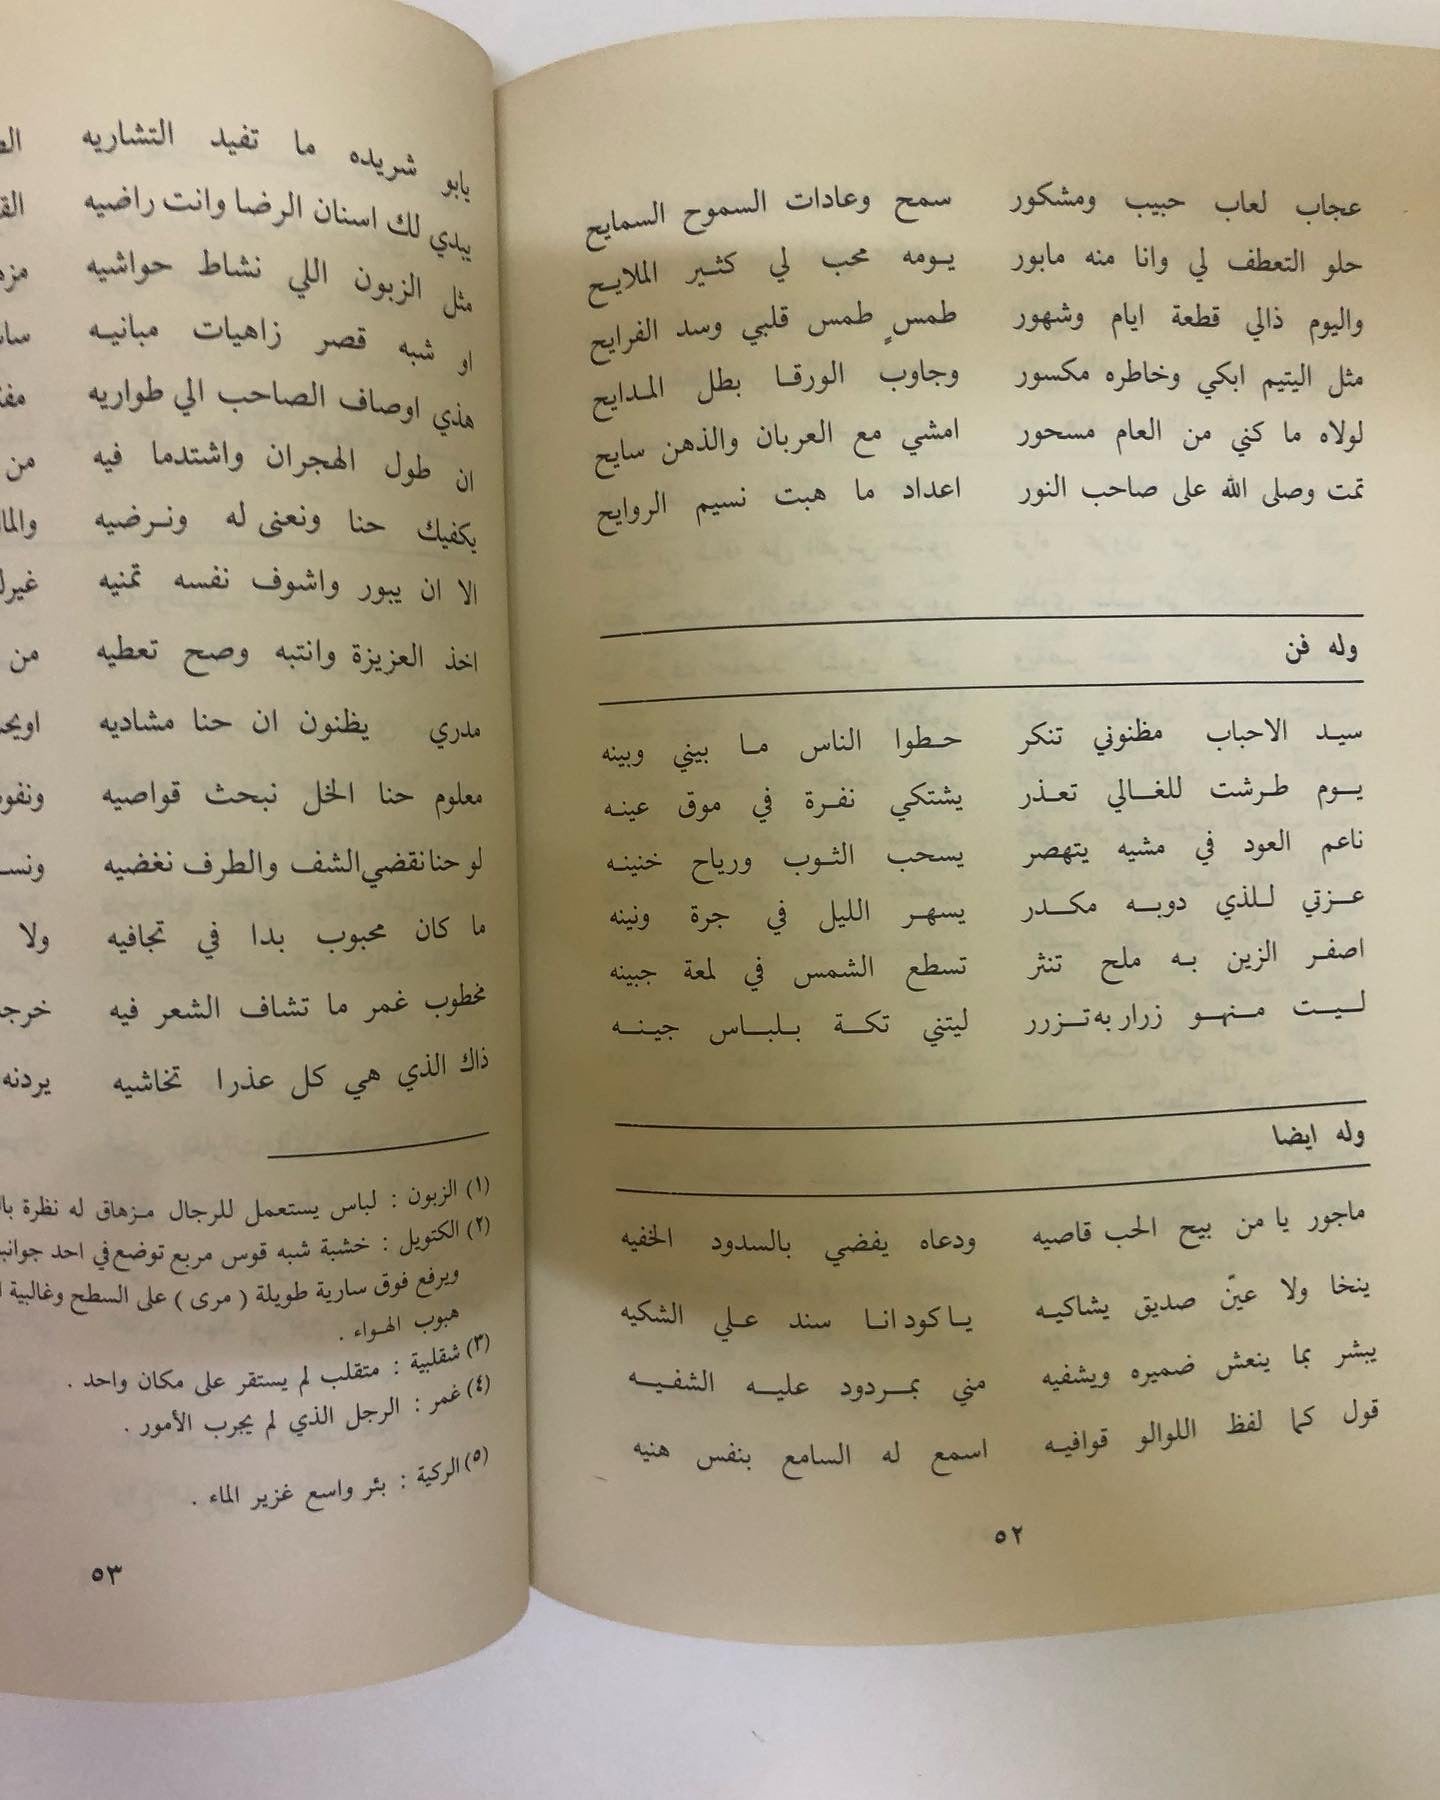 عجاب لعاب حبيب ومشكور سمح وعادات السموح السمايح
حلو التعطف لي وانا منه مابور يومه محب لي كثير الملايح
واليوم ذالي قطعة ايام وشهور طمسٍ طمس قلبي وسد الفرايح
مثل اليتيم ابكي وخاطره مكسور وجاوب الورقا بطل المدايح
لولاه ما كني من العام مسحور امشي مع العربان والذهن سايح
تمت وصلى الله على صاحب النور اعداد ما هبت نسيم الروايح
وله فن
سيد الاحباب مظنوني تنكر حطوا الناس ما بيني وبينه
يوم طرشت للغالي تعذر يشتكي نفرة في موق عينه
ناعم العود في مشيه يتهصر يسحب الثوب ورياح خنينه
عزتي للذي دوبه مكدر يسهر الليل في جرة ونينه
اصفر الزين به ملح تنثر تسطع الشمس في لمعة جبينه
ليت منهو زرار به تزرر ليتني تكة بلباس جينه
وله ايضا
ماجور يا من بيح الحب قاصيه ودعاه يفضي بالسدود الخفيه
ينخا ولا عيّن صديق يشاكيه ياكود انا سند علي الشكيه
يبشر بما ينعش ضميره ويشفيه مني بمردود عليه الشفيه
قول كما لفظ اللوالو قوافيه اسمع له السامع بنفس هنيه
٥٢
يابو شريده ما تفيد التشاريه
يبدي لك اسنان الرضا وانت راضيه
مثل الزبون اللي نشاط حواشيه
او شبه قصر زاهيات مبانيه
هذي اوصاف الصاحب الي طواريه
ان طول الهجران واشتدما فيه من
يكفيك حنا ونعنى له ونرضيه
الا ان يبور واشوف نفسه تمنيه
اخذ العزيزة وانتبه وصح تعطيه من
مدري يظنون ان حنا مشاديه
معلوم حنا الخل نبحث قواصيه
لو حنا نقضي الشف والطرف نغضيه
ما كان محبوب بدا في تجافيه ولا
مخطوب غمر ما تشاف الشعر فيه
ذاك الذي هي كل عذرا تخاشيه يردنه
(١) الزبون : لباس يستعمل للرجال مزهاق له نظرة
(٢) الكتويل : خشبة شبه قوس مربع توضع في احد
ويرفع فوق سارية طويلة ( مرى ) على السطح وغالبية
هبوب الهواء .
(٣) شقلبية : متقلب لم يستقر على مكان واحد .
(٤) غمر : الرجل الذي لم يجرب الأمور .
(٥) الركية : بئر واسع غزير الماء .
٥٣